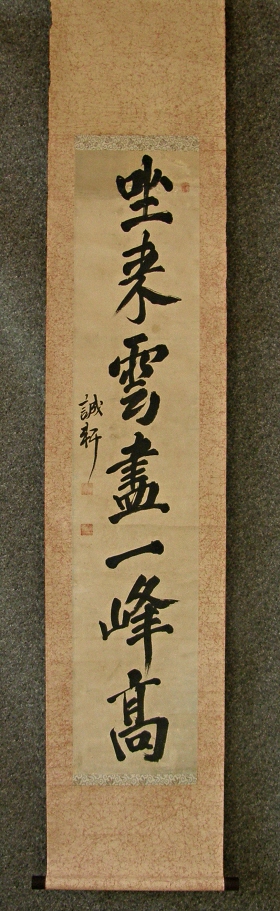 坐来雲盡一峰髙
誠軒